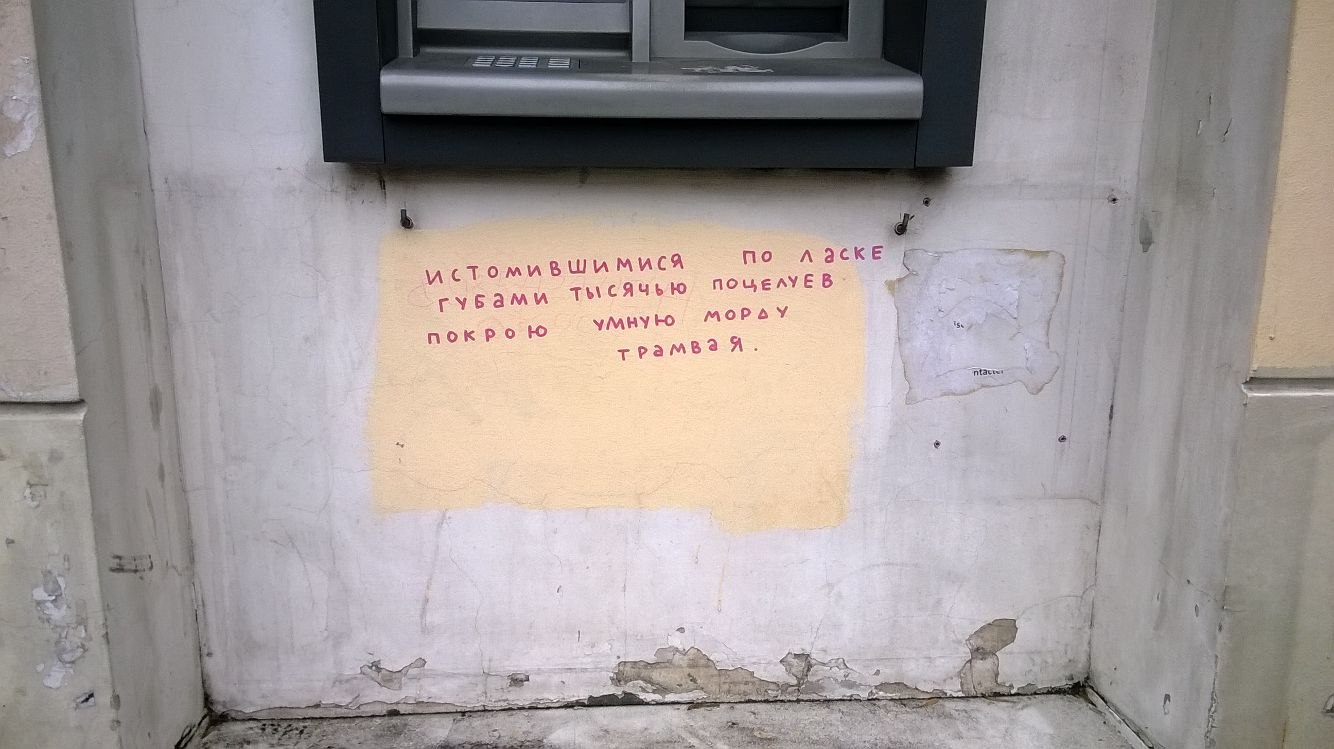 ИСТОМИВШИМИСЯ ПО ЛАСКЕ
ГУБАМИ ТЫСЯЧЬЮ ПОЦЕЛУЕВ
ПОКРОЮ УМНУЮ МОРДУ
ТРАМВАЯ.